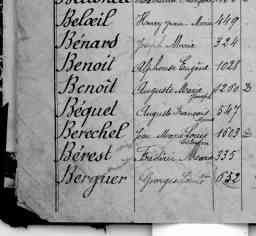 Belœil Henry Jean Marie 449
Bénard Joseph Marie 324
Benoit Alphonse Eugène 1028
Benoît Auguste Marie Joseph 1250 D
Béquet Auguste François 547
Bérechel Jean Marie Louis 1603
Bérest Frédéric Marie 335
Berguer Georges 632